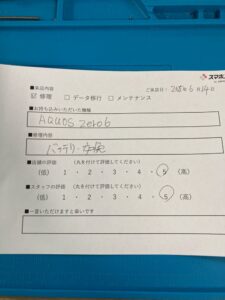 スマホ
■来店内容 ご来店日: 2025年6月14日
☑ 修理 □ データ移行 □ メンテナンス
■お持ち込みいただいた機種
AQUOS zero6
■修理内容
バッテリー交換
■店舗の評価 (丸を付けて評価してください)
(低) 1 ・ 2 ・ 3 ・ 4 ・ 5 (高)
■スタッフの評価 (丸を付けて評価してください)
(低) 1 ・ 2 ・ 3 ・ 4 ・ 5 (高)
■一言いただけますと幸いです